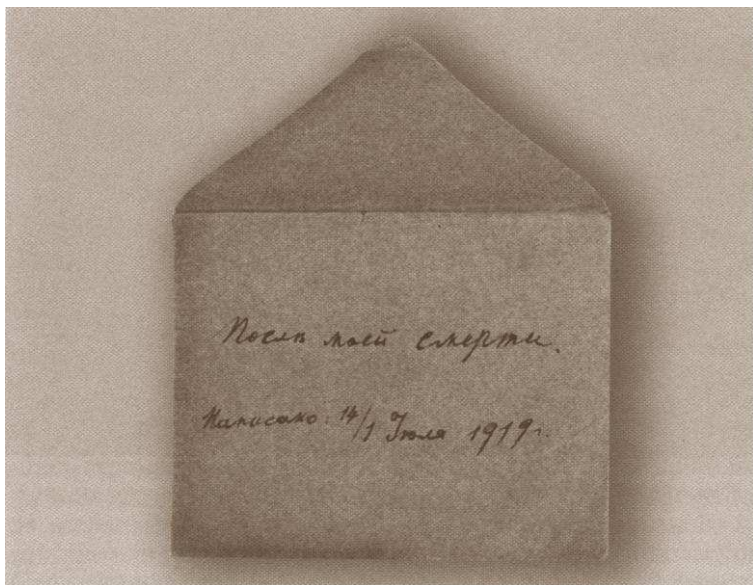 Послѣ моей смерти.
Написано 14/1 Іюля 1919 г.